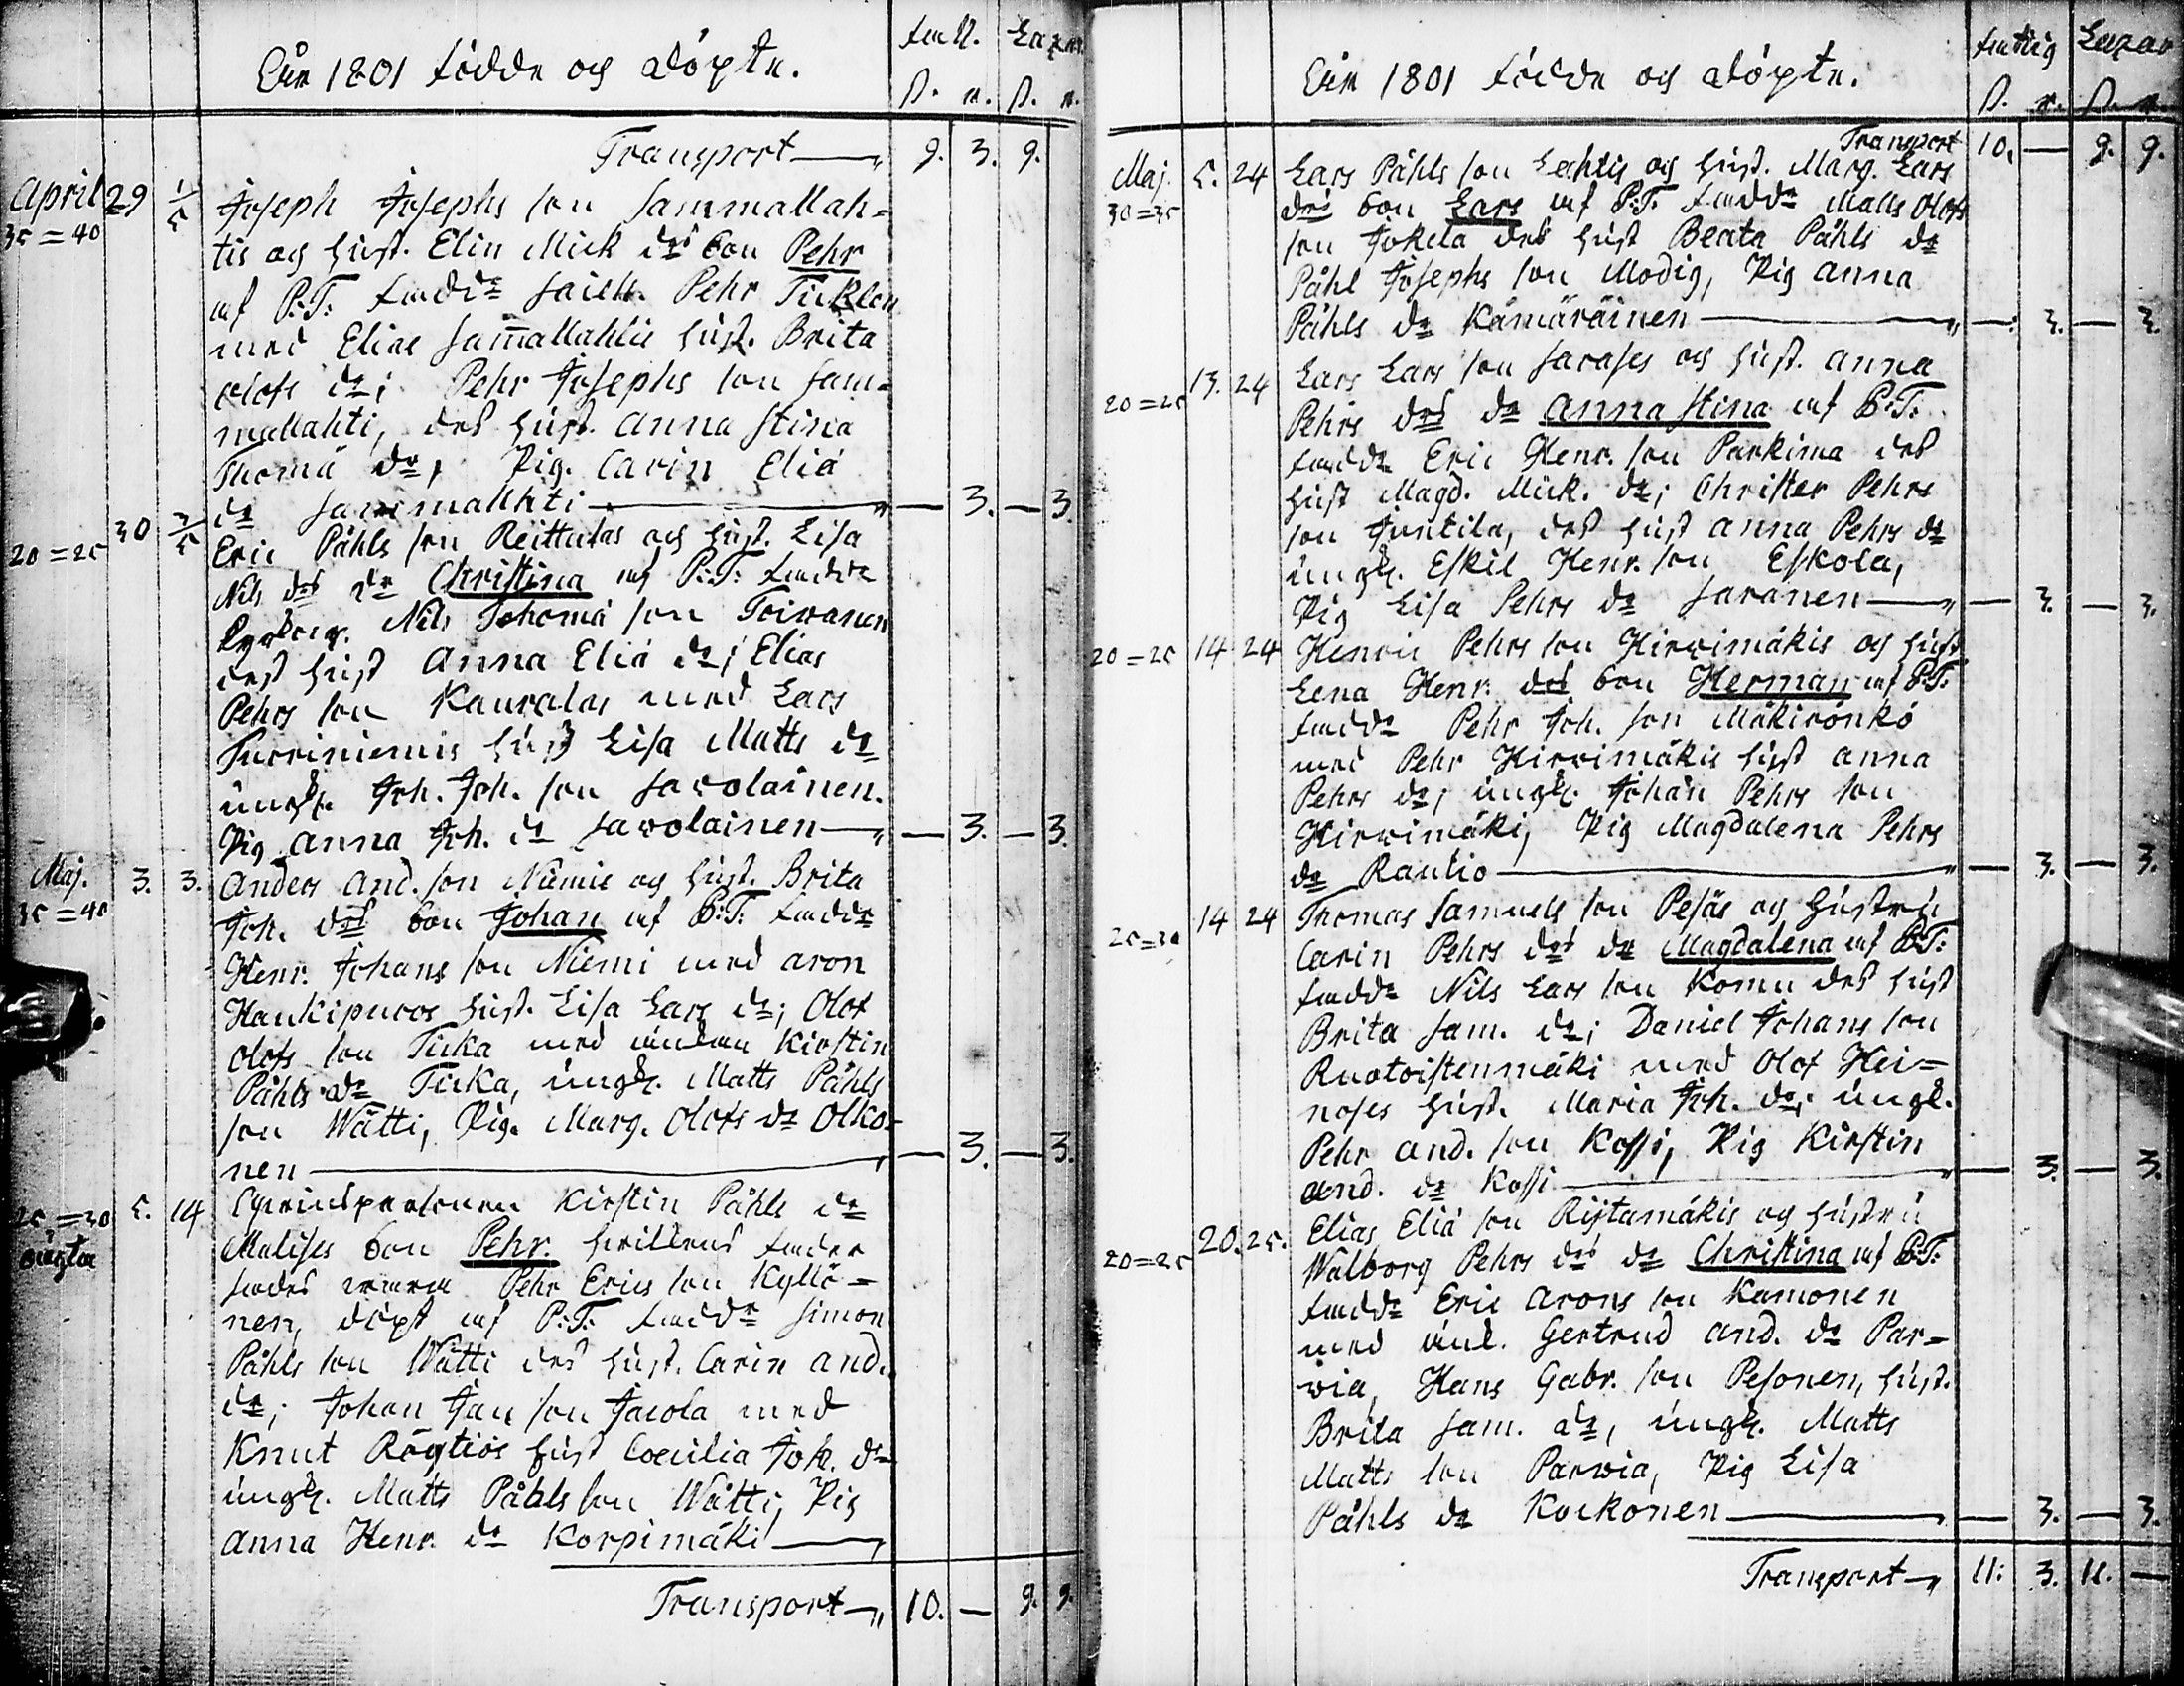 Åhr 1801 födde och döpte.
Fatt. Lazar.
ß. r. ß. r.
Transport 9. 3. 9.
April 29 1/5 Joseph Josephs son Sammallah=
35=40 tis och hust. Elin Mick drs son Pehr
af P.T. fadd. Pehr Ticklen
med Elias Sam̄allahtis hust. Brita
Olofs dr; Pehr Josephs son Sam=
mallahti, des hust. Anna Stina
Thomä dr, Pig. Carin Eliä
dr Sammallahti — 3. — 3.
20=25 30 2/5 Eric Påhls son Reittulas och hust. Lisa
Nils drs dr Christina af P:T: fadd.
Nils Thomä son Toivanen
dess hust Anna Eliä dr; Elias
Pehrs son Kauralas med Lars
Turriniemis hust Lisa Matts dr
ungk. Joh. Joh. son Savolainen.
Pig Anna Joh. dr Savolainen — 3. — 3.
Maj. 3. 3. Anders And. son Niemis och hust. Brita
35=40 Joh. drs son Johan af P:T: fadd.
Henr. Johans son Niemi med Aron
Haukipuros hust. Lisa Lars dr; Olof
Olofs son Ticka med änkan Kirstin
Påhls dr Ticka, ungk. Matts Påhls
son Wätti, Pig. Marg. Olofs dr Olko=
nen — 3. — 3.
25=30 5. 14 Qvinspersonen Kirstin Påhls dr
oäkta Malises son Pehr. hvilkens fader
sades vara Pehr Erics son Kyllö=
nen, döpt af P:T: fadd. Simon
Påhls son Wätti des hust. Carin And.
dr; Johan Jac son Jacola med
Knut Röytiös hust Cæcilia Joh. dr
ungk. Matts Påhls son Wätti, Pig
Anna Henr. dr Korpimäki
Transport 10. — 9. 9.
Åhr 1801 födde och döpte.
Fattig Lazar
ß. r. ß. r.
Transport 10. — 9. 9.
Maj. 5. 24 Lars Påhls son Lahtis och hust. Marg. Lars
30=35 drs son Lars af P:T. fadd. Matts Olofs
son Jokela des hust Beata Påhls dr
Påhl Josephs son Modig, Pig Anna
Påhls dr Kämäräinen — 3. — 3.
20=25 13. 24 Lars Lars son Sarases och hust. Anna
Pehrs drs dr Anna Stina af P:T:
fadd. Eric Henr. son Parkima des
hust Magd. Mick. dr; Christer Pehrs
son Juntila, des hust Anna Pehrs dr
ungk. Eskil Henr. son Eskola,
Pig Lisa Pehrs dr Saranen — 3. — 3.
20=25 14 24 Henric Pehrs son Hirvimäkis och hust
Lena Henr. drs son Herman af P:T:
fadd. Pehr Joh. son Mäkirönkö
med Pehr Hirvimäkis hust Anna
Pehrs dr, ungk. Johan Pehrs son
Hirvimäki, Pig Magdalena Pehrs
dr Rautio — 3. — 3.
25=30 14 24 Thomas Samuels son Pesäs och hustru
Carin Pehrs drs dr Magdalena af P:T:
fadd. Nils Lars son Komu des hust
Brita Sam. dr; Daniel Johans son
Ruotoistenmäki med Olof Hei=
noses hust. Maria Joh. dr; ungk.
Pehr And. son Kossi, Pig Kirstin
And. dr Kossi — 3. — 3.
20=25 20. 25. Elias Eliä son Ristamäkis och hustru
Walborg Pehrs drs dr Christina af P:T:
fadd. Eric Arons son Kamonen
med änk. Gertrud And. dr Par=
via, Hans Gabr. son Pesonen, hust.
Brita Sam. dr, ungk. Matts
Matts son Parvia, Pig Lisa
Påhls dr Kockonen — 3. — 3.
Transport 11: 3. 11. —